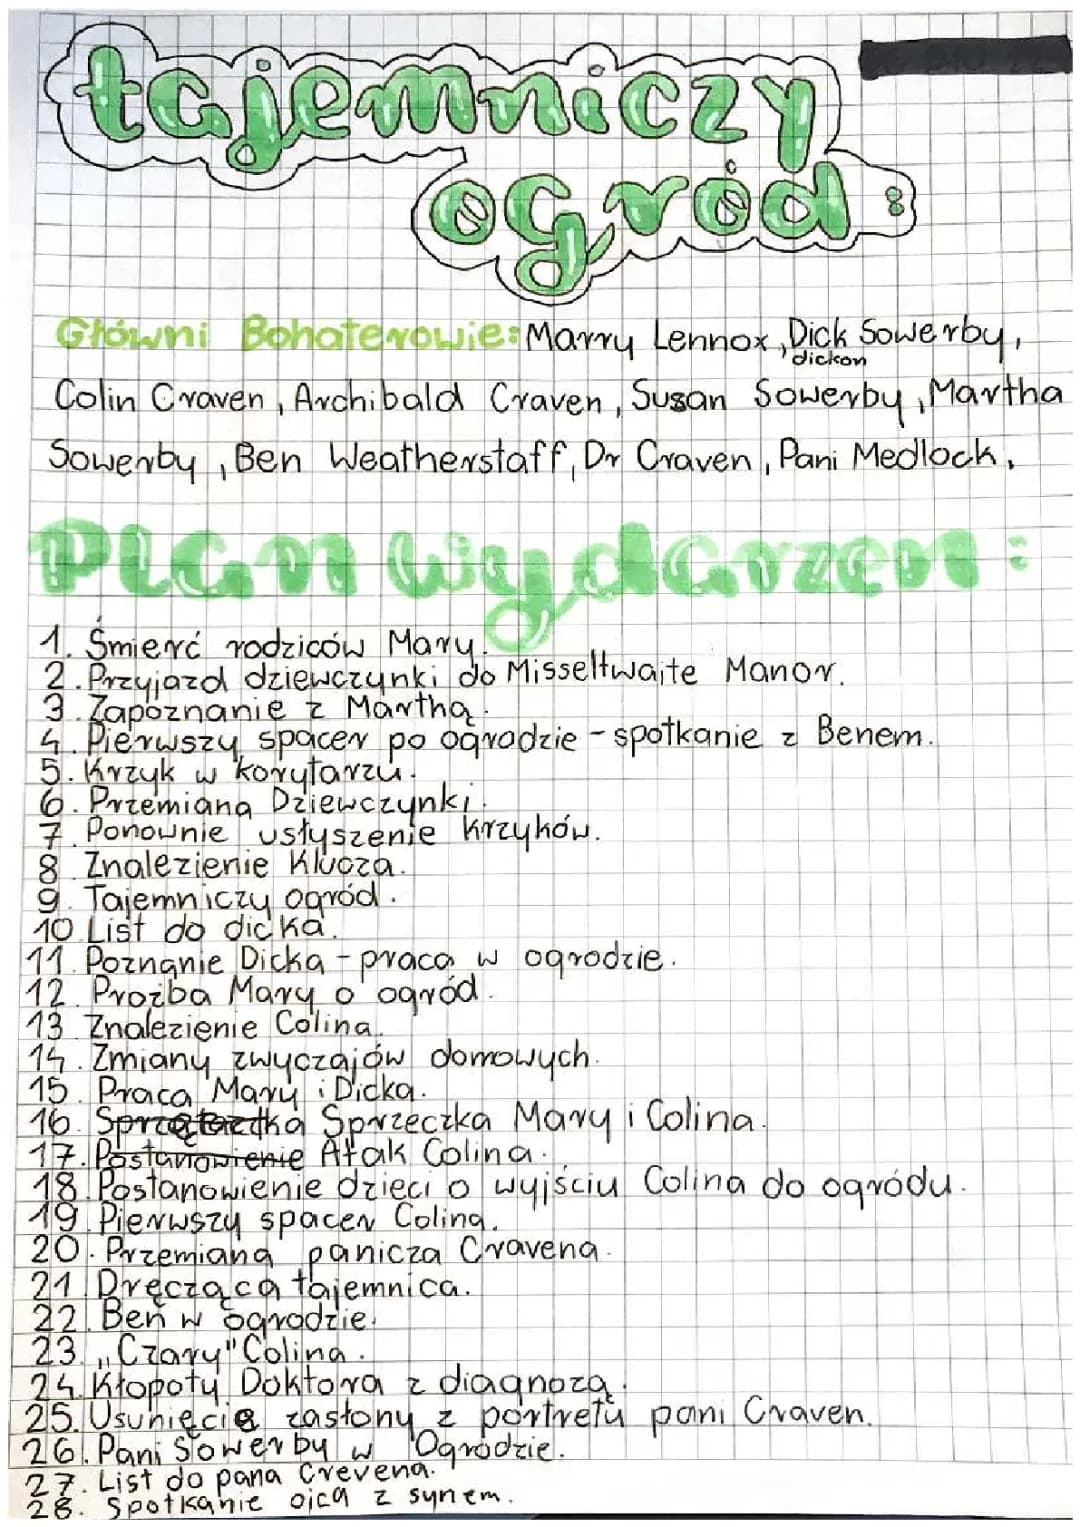 tajemniczy
ogród:
Główni Bohaterowie: Marry Lennox, Dick Sowerby,
dickon
Colin Craven, Archibald Craven, Susan Sowerby, Martha
Sowerby, Ben Weatherstaff, Dr Craven, Pani Medlock,
Plan wydarzeń:
1. Śmierć rodziców Mary.
2. Przyjazd dziewczynki do Misseltwaite Manor.
3. Zapoznanie z Marthą.
4. Pierwszy spacer po ogrodzie - spotkanie z Benem.
5. Krzyk w korytarzu.
6. Przemiana Dziewczynki.
7. Ponownie usłyszenie krzyków.
8. Znalezienie Klucza.
9. Tajemniczy ogród.
10. List do dicka.
11. Poznanie Dicka - praca w ogrodzie.
12. Prozba Mary o ogród.
13. Znalezienie Colina.
14. Zmiany zwyczajów domowych.
15. Praca Mary i Dicka.
16. Sprzeczka Mary i Colina.
17. Postanowienie Atak Colina.
18. Postanowienie dzieci o wyjściu Colina do ogródu.
19. Pierwszy spacer Colina.
20. Przemiana panicza Cravena.
21. Dręcząca tajemnica.
22. Ben w ogrodzie.
23. „Czary" Colina.
24. Kłopoty Doktora z diagnozą.
25. Usunięcie zasłony z portretu pani Craven.
26. Pani Sowerby w Ogrodzie.
27. List do pana Crevena.
28. Spotkanie ojca z synem.